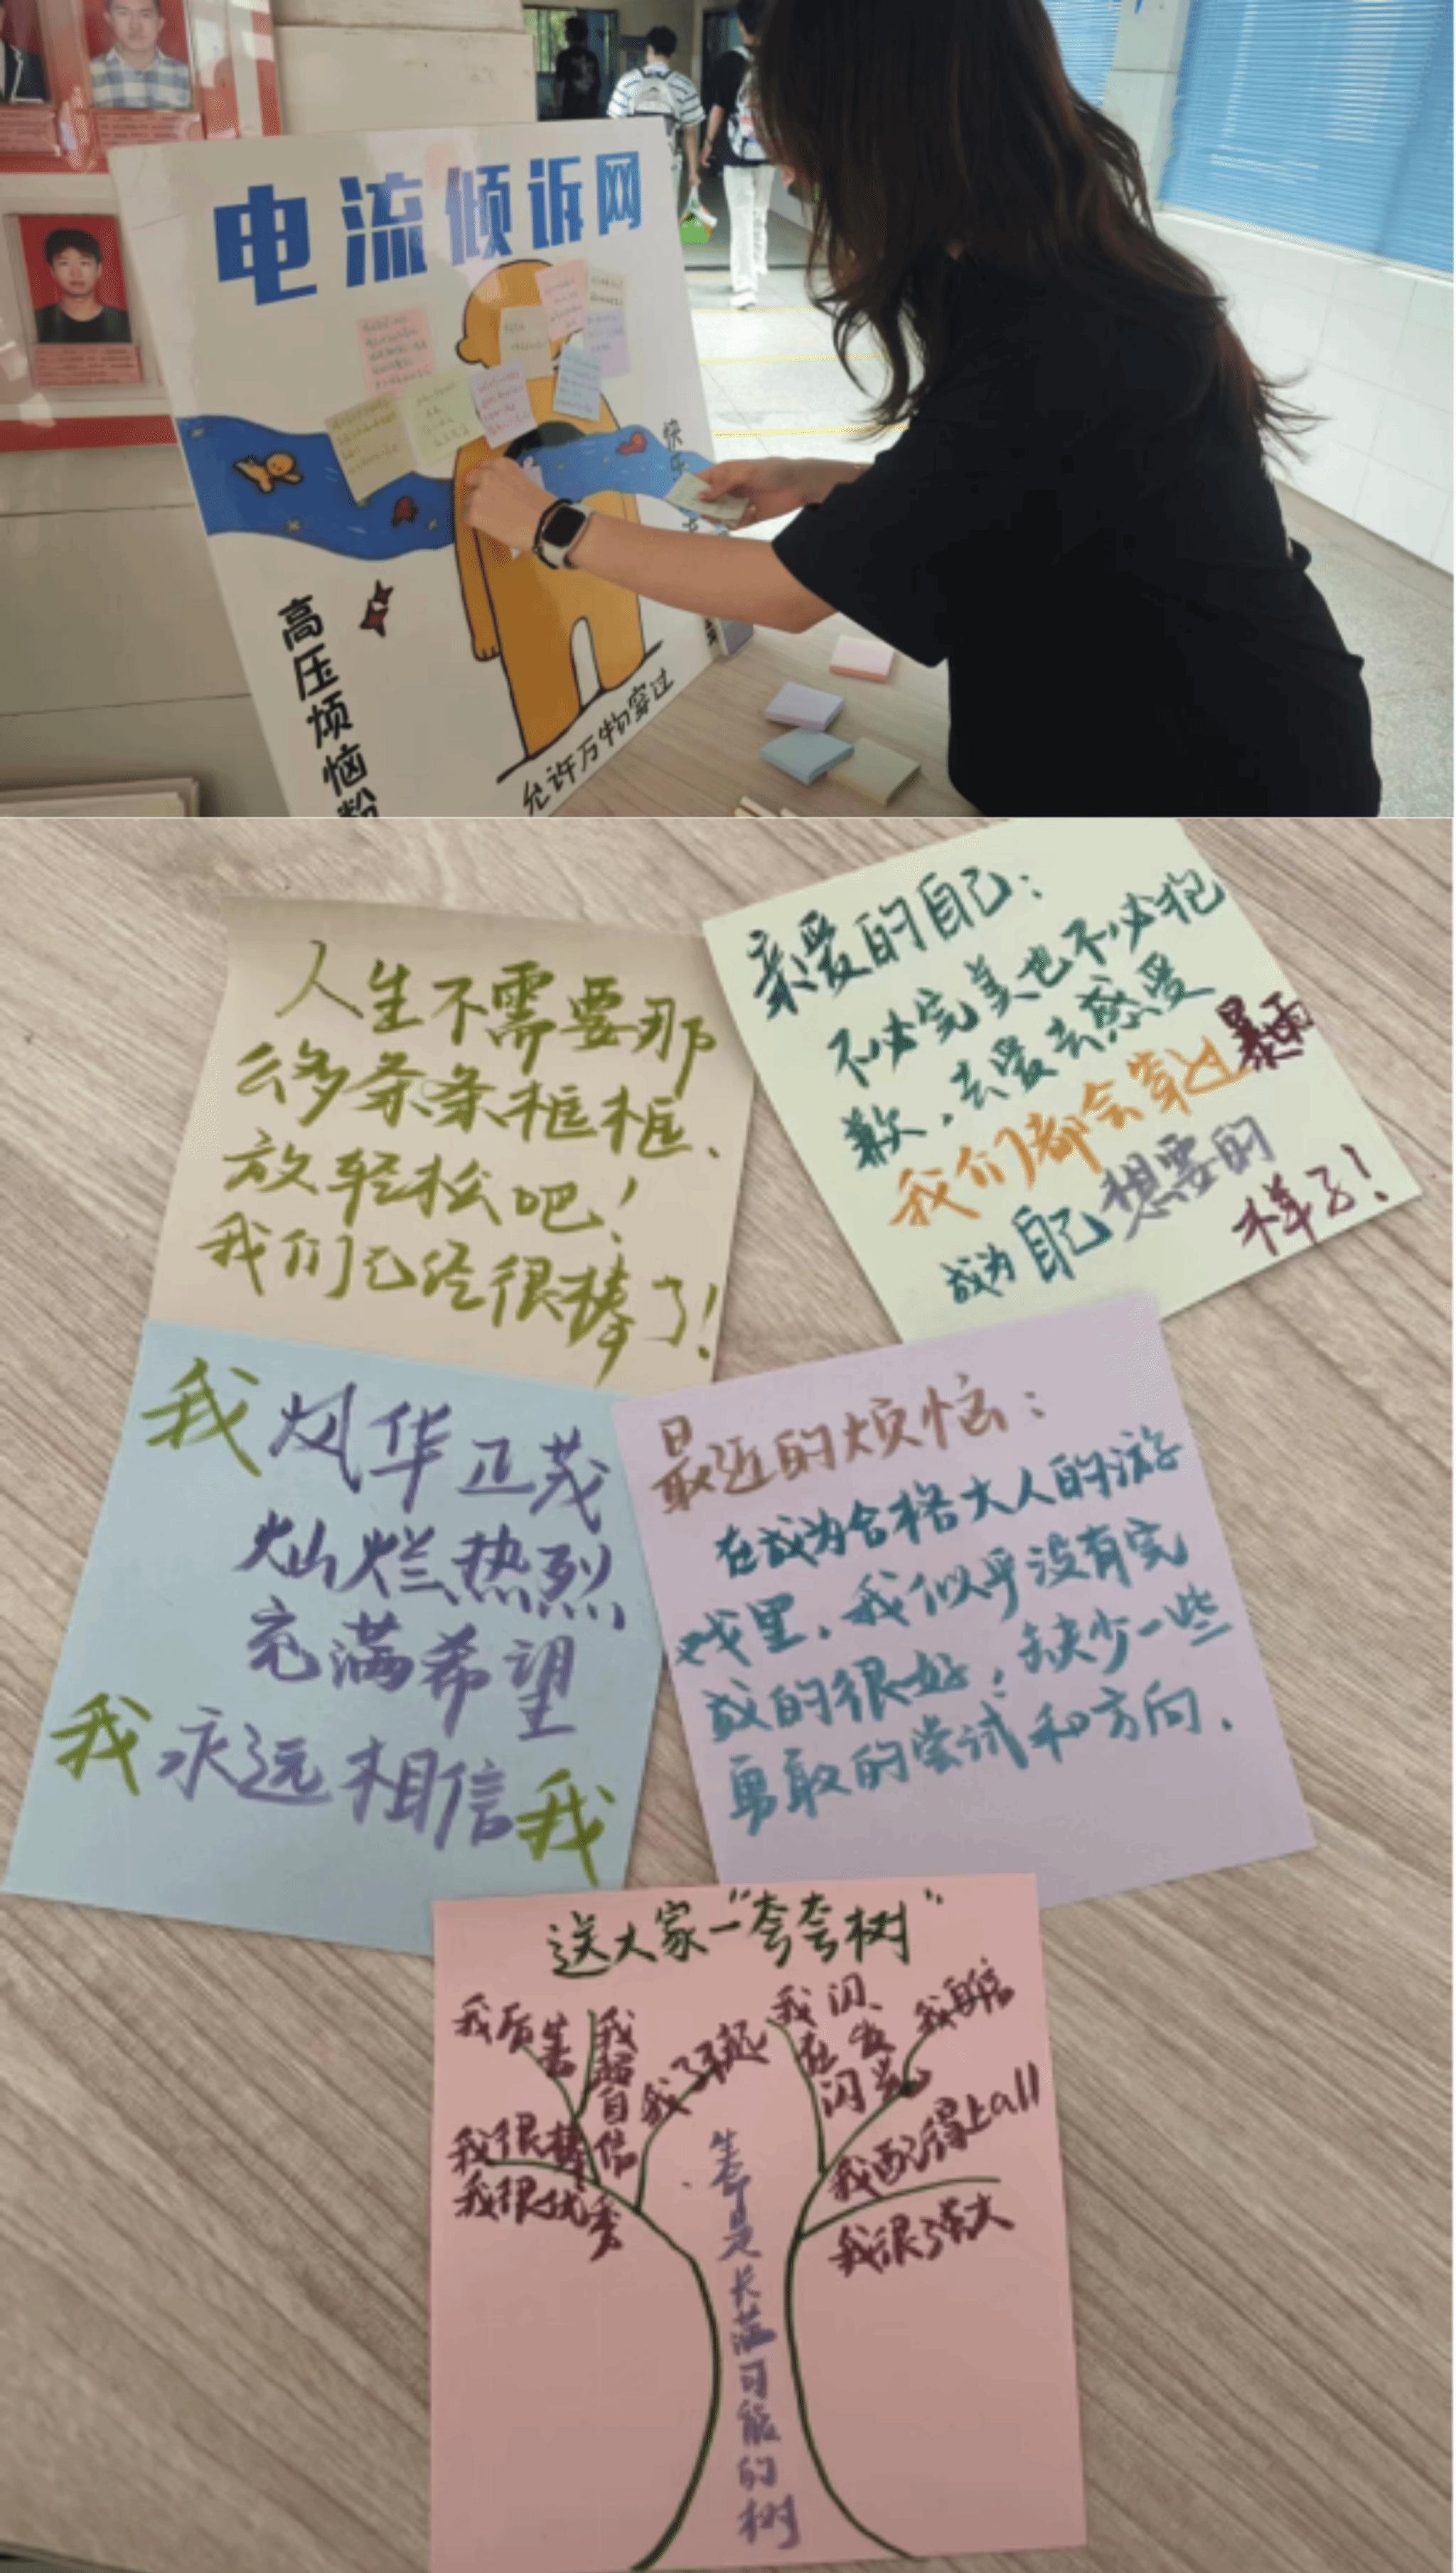 电流倾诉网
快乐
高压烦恼粉
允许万物穿过
人生不需要那
么多条条框框、
放轻松吧！
我们已经很棒了！
亲爱的自己：
不必完美也不必抱
歉，去爱去感受
我们都会穿过暴雨
成为自己想要的
样子！
我风华正茂
灿烂热烈
充满希望
我永远相信我
最近的烦恼：
在成为合格大人的游
戏里，我似乎没有完
成的很好，缺少一些
勇敢的尝试和方向．
送大家一“夸夸树”
我厉害
我超自信
我了不起
我闪、在发闪光
我自信
我很棒
我很优秀
我配得上all
我很强大
生命是长满可能的树